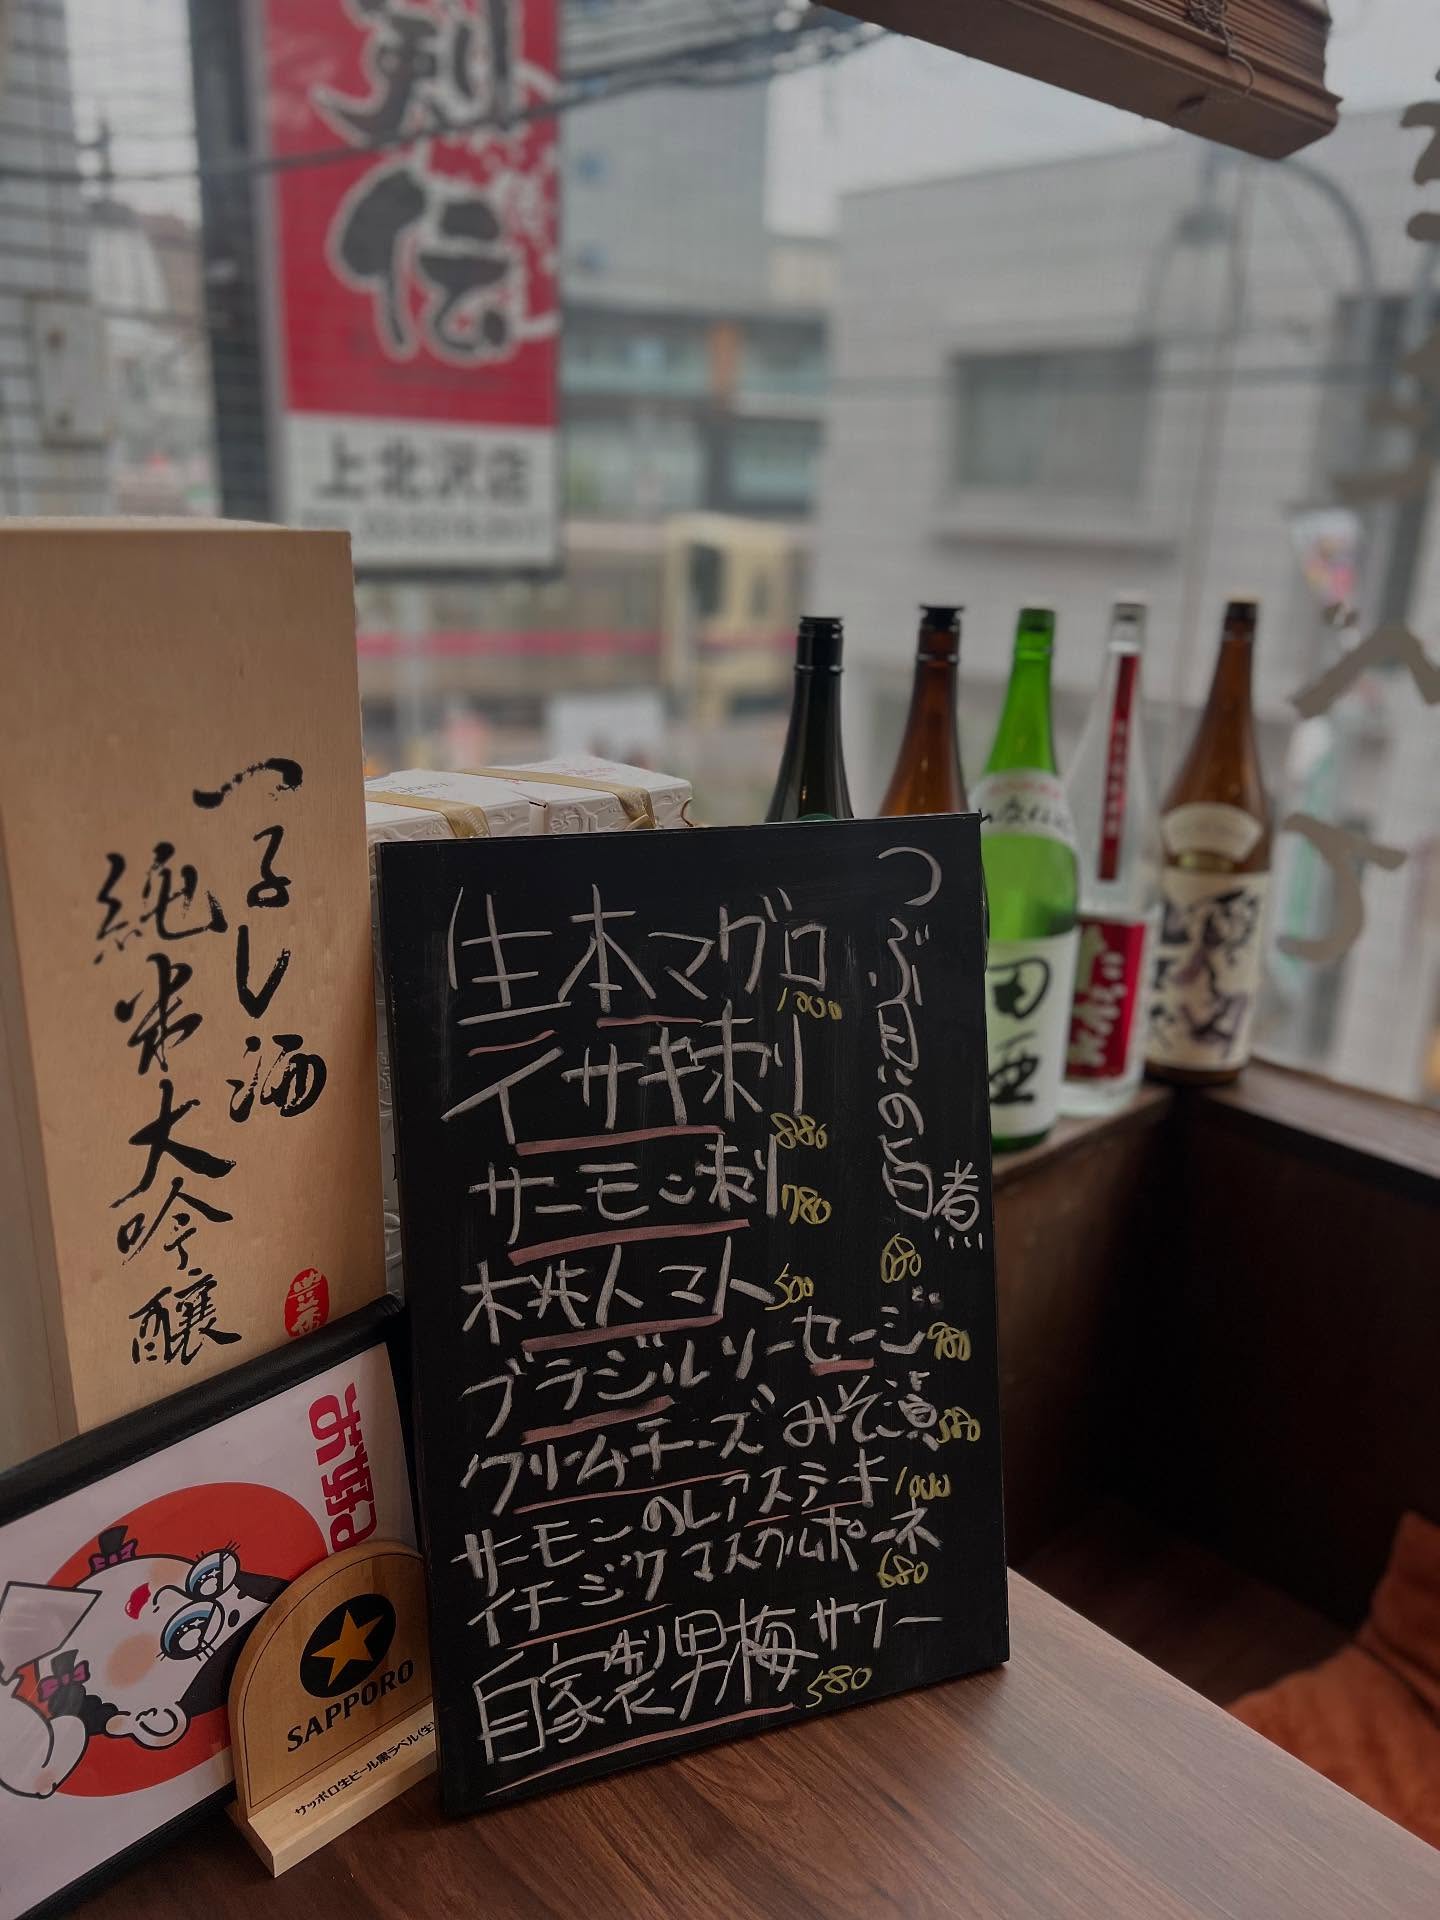 伝
上北沢店
つるし酒
純米大吟醸
お好み
SAPPORO
サッポロ生ビール黒ラベル(生)
田酒
つぶ貝の旨煮
680
生本マグロ
1000
イサキ刺
880
サーモン刺
780
桃トマト
500
ブラジルソーセージ
980
クリームチーズみそ漬
580
サーモンのレアステーキ
1000
イチジクマスカルポーネ
680
自家製男梅サワー
580